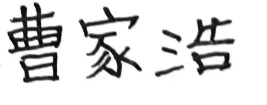 曹家浩